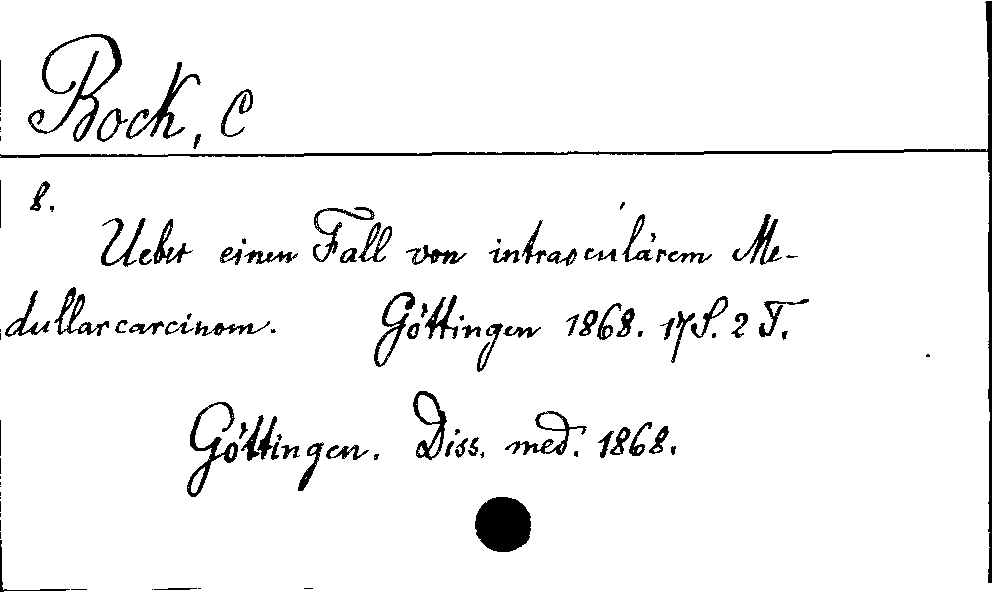 Bock, C
8.
Ueber einen Fall von intraoculärem Me-
dullarcarcinom. Göttingen 1868. 17 S. 2 T.
Göttingen. Diss. med. 1868.